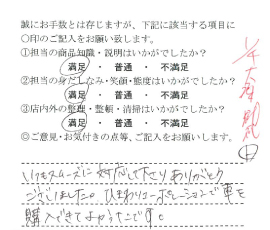 誠にお手数とは存じますが、下記に該当する項目に
〇印のご記入をお願い致します。
①担当の商品知識・説明はいかがでしたか?
満足 ・ 普通 ・ 不満足
②担当の身だしなみ・笑顔・態度はいかがでしたか?
満足 ・ 普通 ・ 不満足
③店内外の整理・整頓・清掃はいかがでしたか?
満足 ・ 普通 ・ 不満足
◎ご意見・お気付きの点等、ご記入をお願いします。
いつもスムーズに対応して下さりありがとう
ございました。ひまわりコーポレーションで車を
購入できてよかったです。